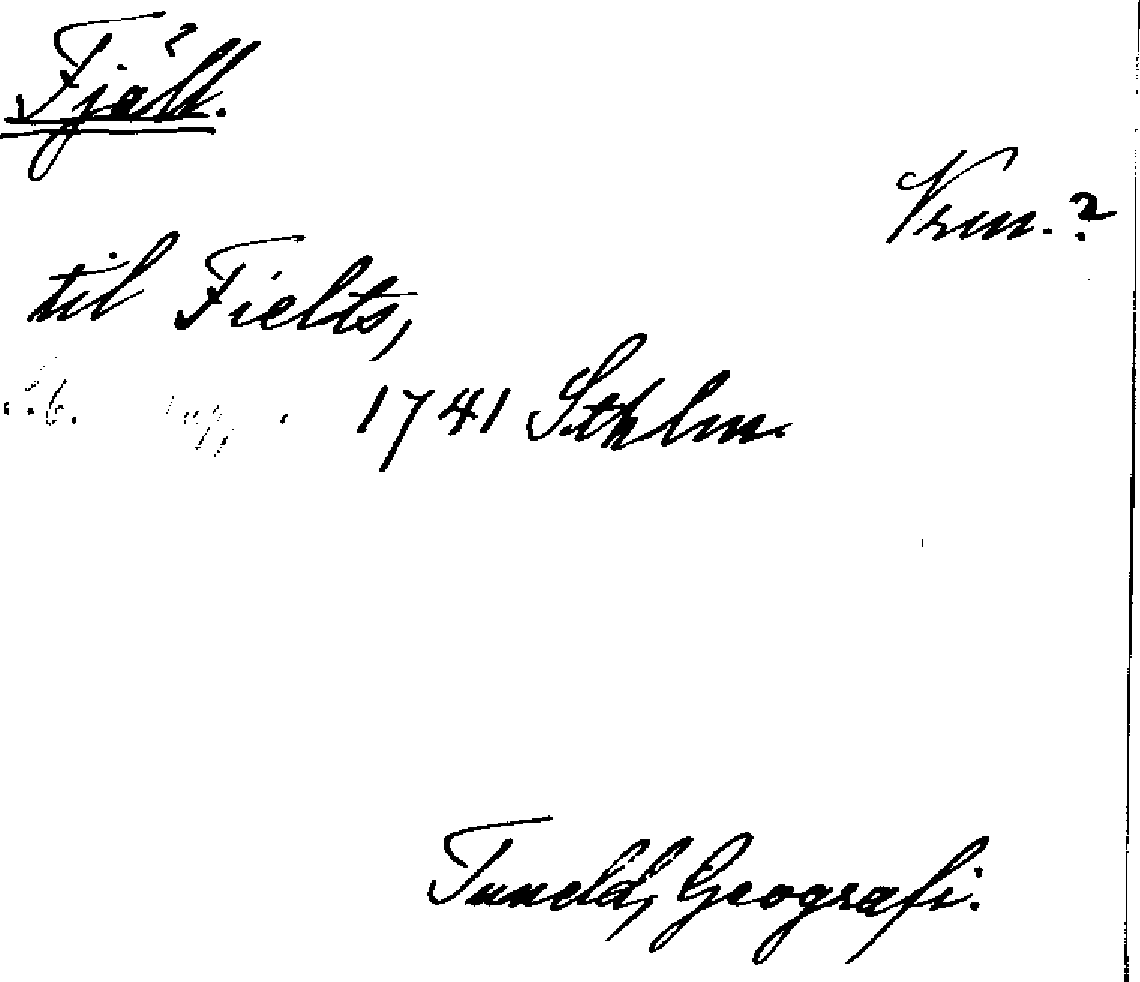 Fjäll.
Vrm.?
til Fielts,
1741 Sthlm.
Tuneld, Geografi.